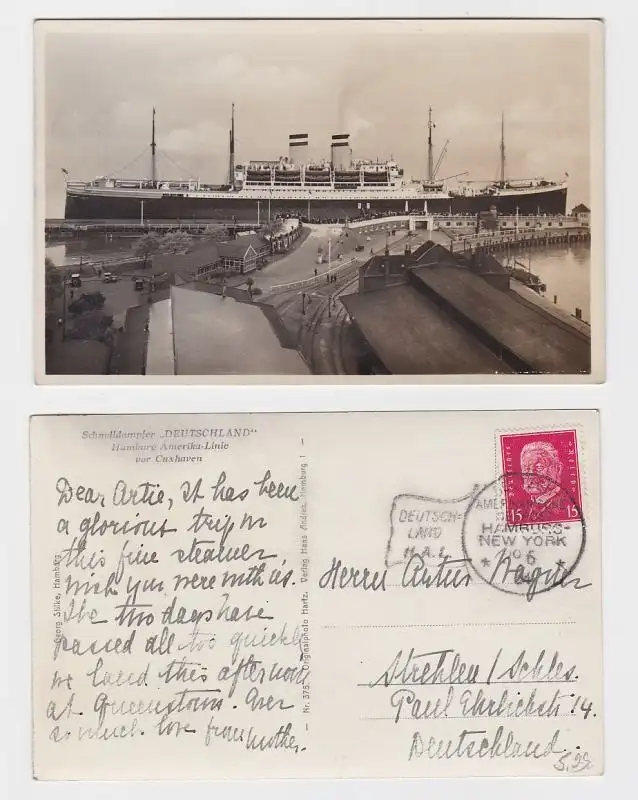 Schnelldampfer „DEUTSCHLAND"
Hamburg Amerika-Linie
vor Cuxhaven
Dear Artie, It has been
a glorious trip on
this fine steamer,
wish you were with us.
The two days have
passed all too quickly
we land this afternoon
at Queenstown. Ever
so much love from Mother.
Georg Stilke, Hamburg
Nr. 375 Originalphoto Hartz. Verlag Hans Andres, Hamburg 1
DEUTSCH-
LAND
H.A.L.
Deutsches Reich
15 15
HAMBURG-
NEW YORK
No 6
Herrn Artur Wagner
Strehlen / Schles.
Paul Ehrlichstr. 14.
Deutschland.